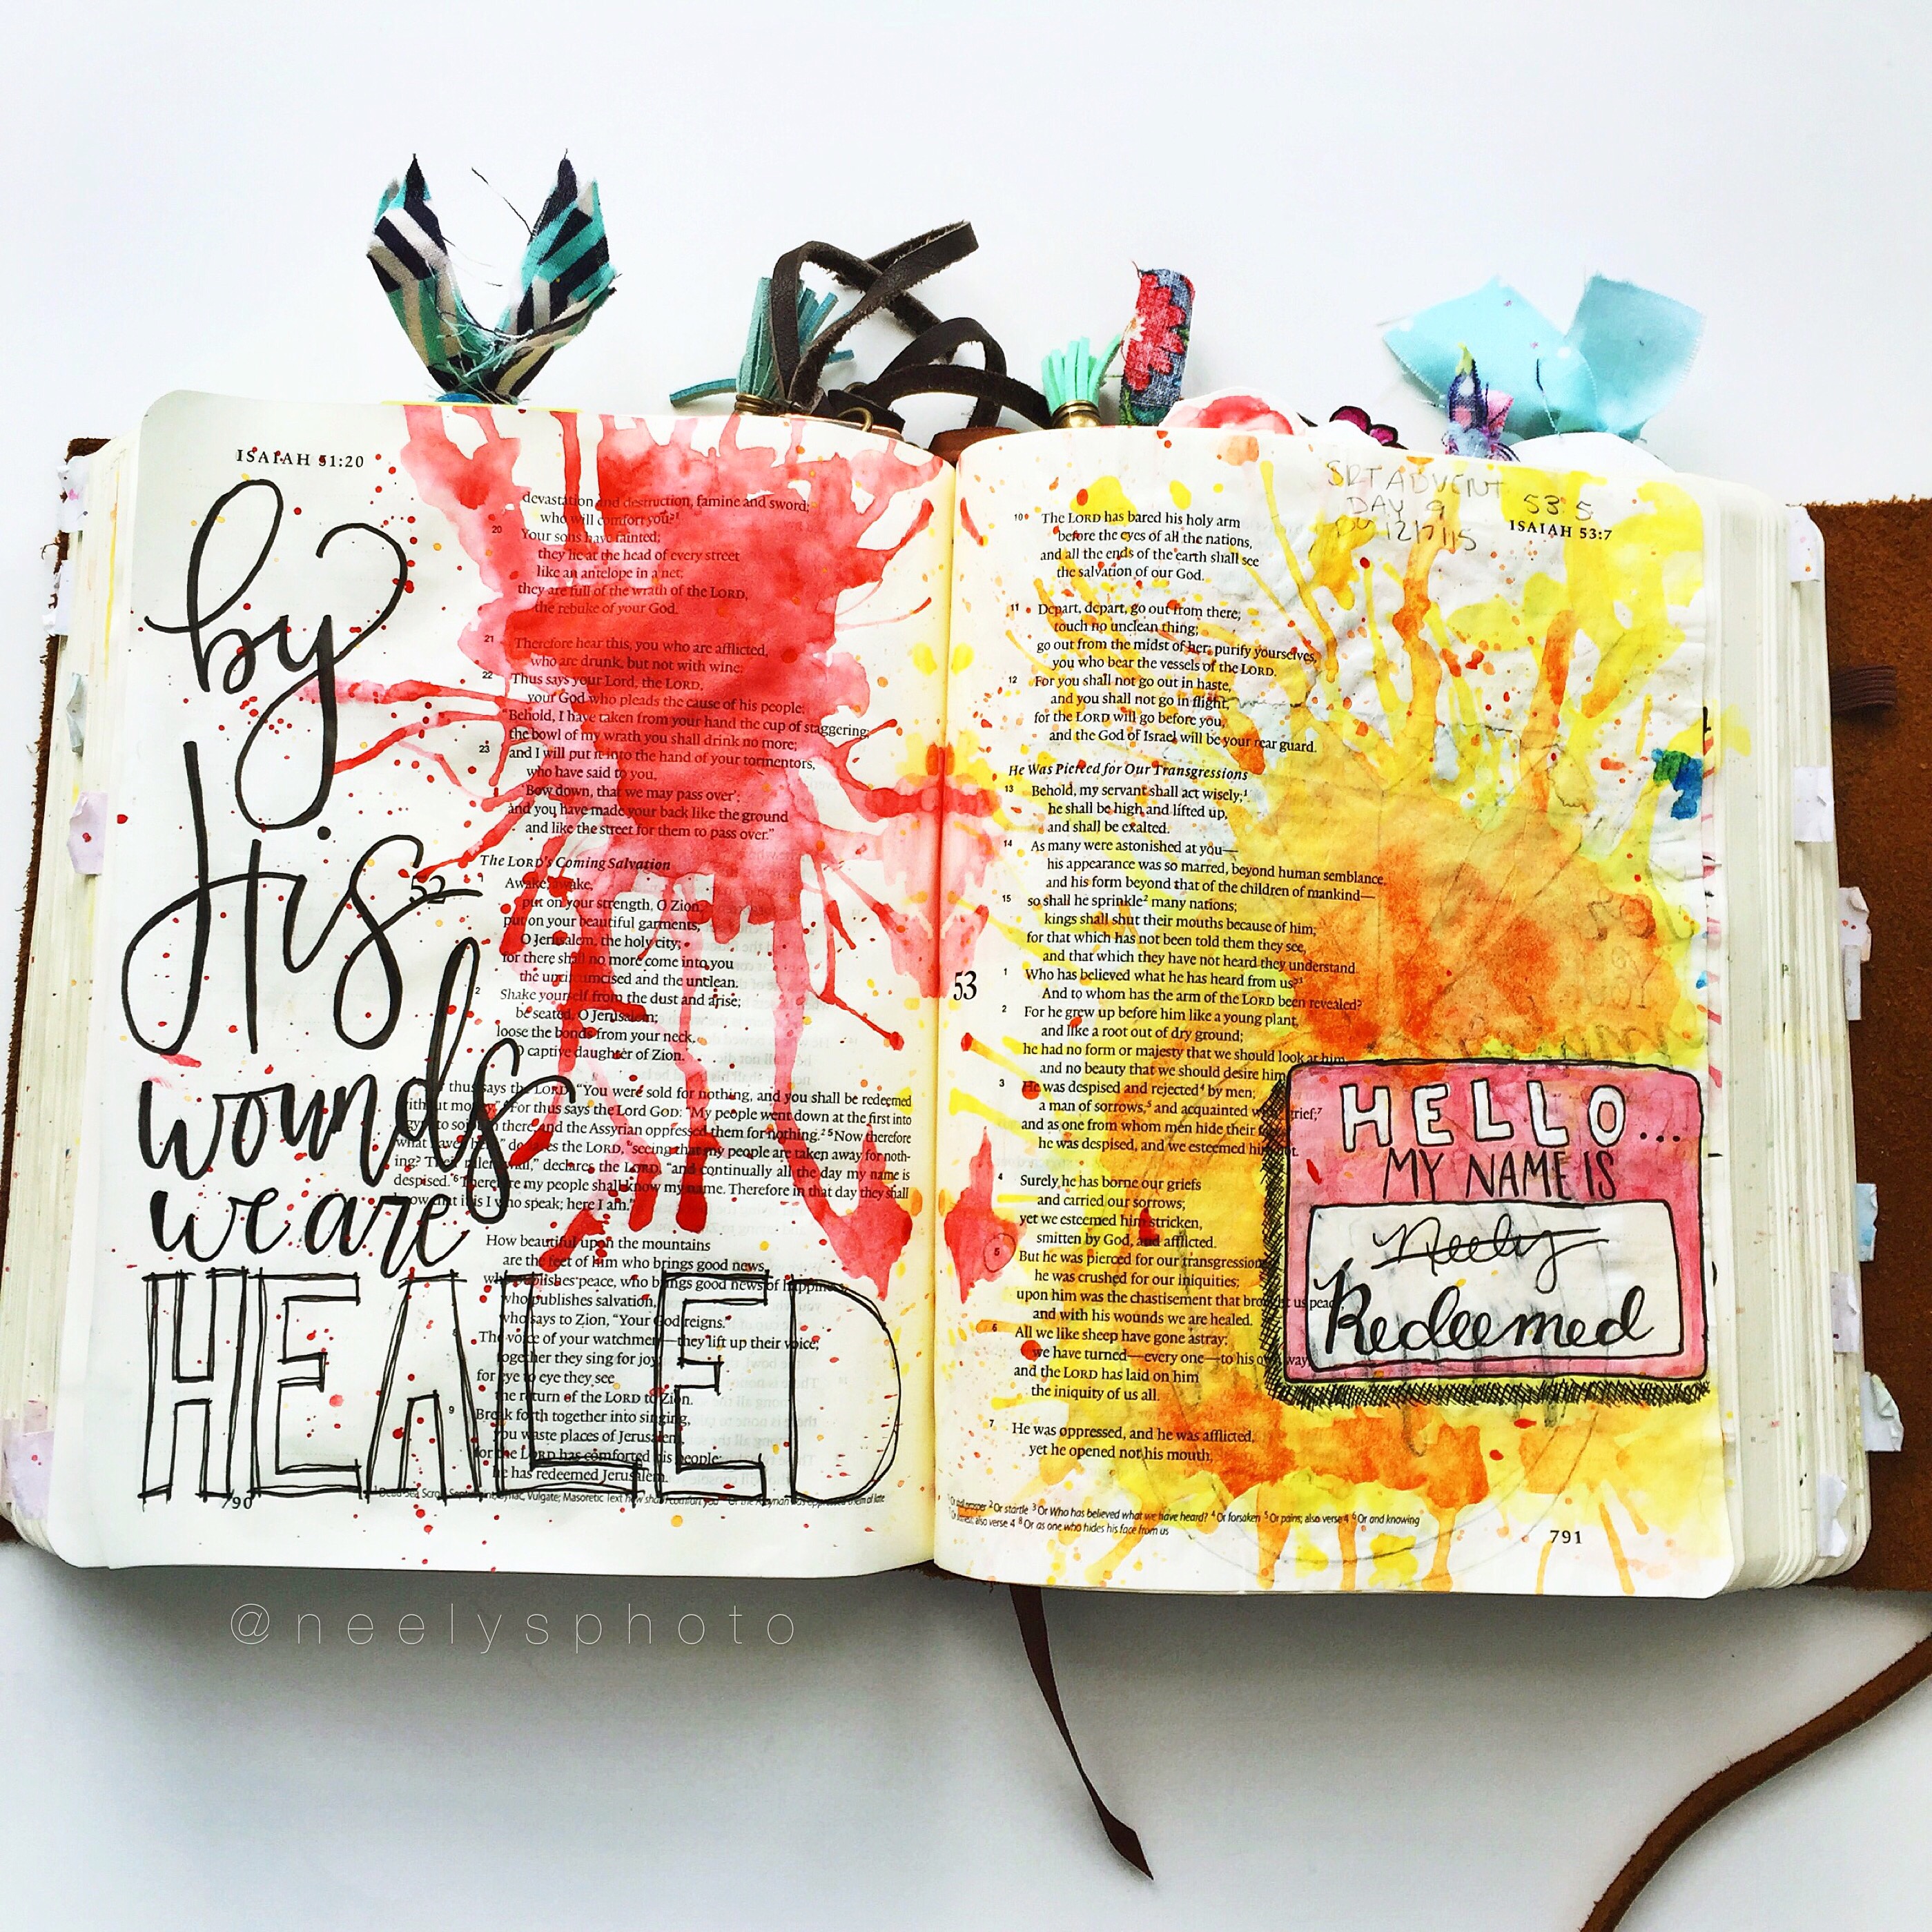 ISAIAH 51:20
by
His
wounds
we are
HEALED
devastation and destruction, famine and sword;
who will comfort you?¹
20 Your sons have fainted;
they lie at the head of every street
like an antelope in a net;
they are full of the wrath of the LORD,
the rebuke of your God.
21 Therefore hear this, you who are afflicted,
who are drunk, but not with wine:
22 Thus says your Lord, the LORD,
your God who pleads the cause of his people:
"Behold, I have taken from your hand the cup of staggering;
the bowl of my wrath you shall drink no more;
23 and I will put it into the hand of your tormentors,
who have said to you,
'Bow down, that we may pass over';
and you have made your back like the ground
and like the street for them to pass over."
The LORD's Coming Salvation
52 1 Awake, awake,
put on your strength, O Zion;
put on your beautiful garments,
O Jerusalem, the holy city;
for there shall no more come into you
the uncircumcised and the unclean.
2 Shake yourself from the dust and arise;
be seated, O Jerusalem;
loose the bonds from your neck,
O captive daughter of Zion.
thus says the LORD: "You were sold for nothing, and you shall be redeemed
without money." For thus says the Lord GOD: "My people went down at the first into
to sojourn there, and the Assyrian oppressed them for nothing.² 5 Now therefore
what have I here," declares the LORD, "seeing that my people are taken away for noth-
ing? Their rulers wail," declares the LORD, "and continually all the day my name is
despised. 6 Therefore my people shall know my name. Therefore in that day they shall
know that it is I who speak; here I am."
How beautiful upon the mountains
are the feet of him who brings good news,
who publishes peace, who brings good news of happiness,
who publishes salvation,
who says to Zion, "Your God reigns."
8 The voice of your watchmen—they lift up their voice;
together they sing for joy;
for eye to eye they see
the return of the LORD to Zion.
9 Break forth together into singing,
you waste places of Jerusalem,
for the LORD has comforted his people;
he has redeemed Jerusalem.
790
SRT ADVENT
DAY 9
12/7/15
53:5
ISAIAH 53:7
10 The LORD has bared his holy arm
before the eyes of all the nations,
and all the ends of the earth shall see
the salvation of our God.
11 Depart, depart, go out from there;
touch no unclean thing;
go out from the midst of her; purify yourselves,
you who bear the vessels of the LORD.
12 For you shall not go out in haste,
and you shall not go in flight,
for the LORD will go before you,
and the God of Israel will be your rear guard.
He Was Pierced for Our Transgressions
13 Behold, my servant shall act wisely;¹
he shall be high and lifted up,
and shall be exalted.
14 As many were astonished at you—
his appearance was so marred, beyond human semblance,
and his form beyond that of the children of mankind—
15 so shall he sprinkle² many nations;
kings shall shut their mouths because of him;
for that which has not been told them they see,
and that which they have not heard they understand.
53 1 Who has believed what he has heard from us?³
And to whom has the arm of the LORD been revealed?
2 For he grew up before him like a young plant,
and like a root out of dry ground;
he had no form or majesty that we should look at him,
and no beauty that we should desire him
3 He was despised and rejected⁴ by men;
a man of sorrows,⁵ and acquainted with⁶ grief;⁷
and as one from whom men hide their
he was despised, and we esteemed him not.
4 Surely he has borne our griefs
and carried our sorrows;
yet we esteemed him stricken,
smitten by God, and afflicted.
5 But he was pierced for our transgressions
he was crushed for our iniquities;
upon him was the chastisement that brought us peace,
and with his wounds we are healed.
6 All we like sheep have gone astray;
we have turned—every one—to his own way;
and the LORD has laid on him
the iniquity of us all.
7 He was oppressed, and he was afflicted,
yet he opened not his mouth;
HELLO...
MY NAME IS
Neely
Redeemed
prosper ² Or startle ³ Or Who has believed what we have heard? ⁴ Or forsaken ⁵ Or pains; also verse 4 ⁶ Or and knowing
also verse 4 ⁸ Or as one who hides his face from us
791
@neelysphoto